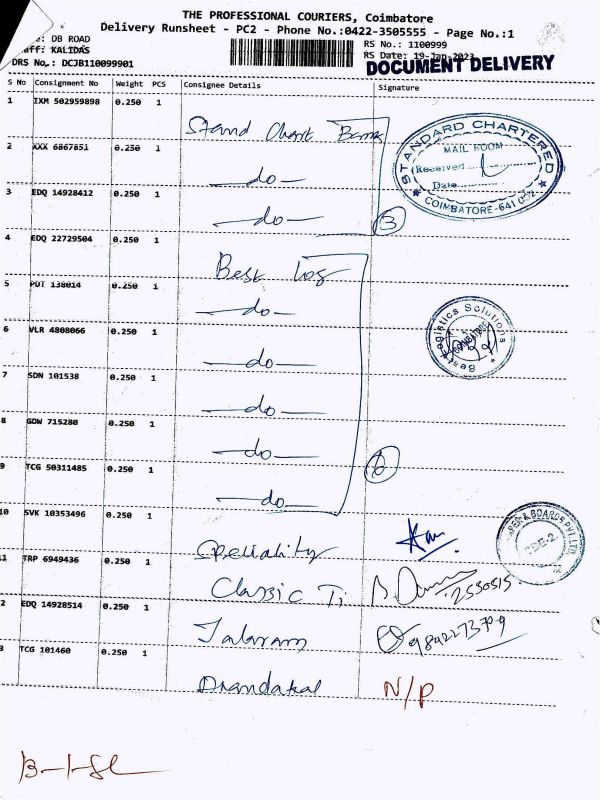 THE PROFESSIONAL COURIERS, Coimbatore
Delivery Runsheet - PC2 - Phone No.:0422-3505555 - Page No.:1
: DB ROAD
aff: KALIDAS
DRS No.: DCJB110099901
RS No.: 1100999
RS Date: 19-Jan-2023
DOCUMENT DELIVERY
S No Consignment No Weight PCS Consignee Details Signature
1 IXM 502959898 0.250 1 Stand Chart Bank
STANDARD CHARTERED
MAIL ROOM
Received
Date
COIMBATORE-641 0
2 XXX 6867851 0.250 1 —do—
3 EDQ 14928412 0.250 1 —do— 3
4 EDQ 22729504 0.250 1 Best Log
5 PDT 138014 0.250 1 —do—
Best Logistics Solutions
6 VLR 4808066 0.250 1 —do—
7 SDN 101538 0.250 1 —do—
8 GDW 715280 0.250 1 —do—
9 TCG 50311485 0.250 1 —do— 6
10 SVK 10353496 0.250 1 Speciality
& BOARDS PVT.LTD
CBE-2
11 TRP 6949436 0.250 1 Classic Ti
2 EDQ 14928514 0.250 1 Jalaram
3 TCG 101460 0.250 1 N/P